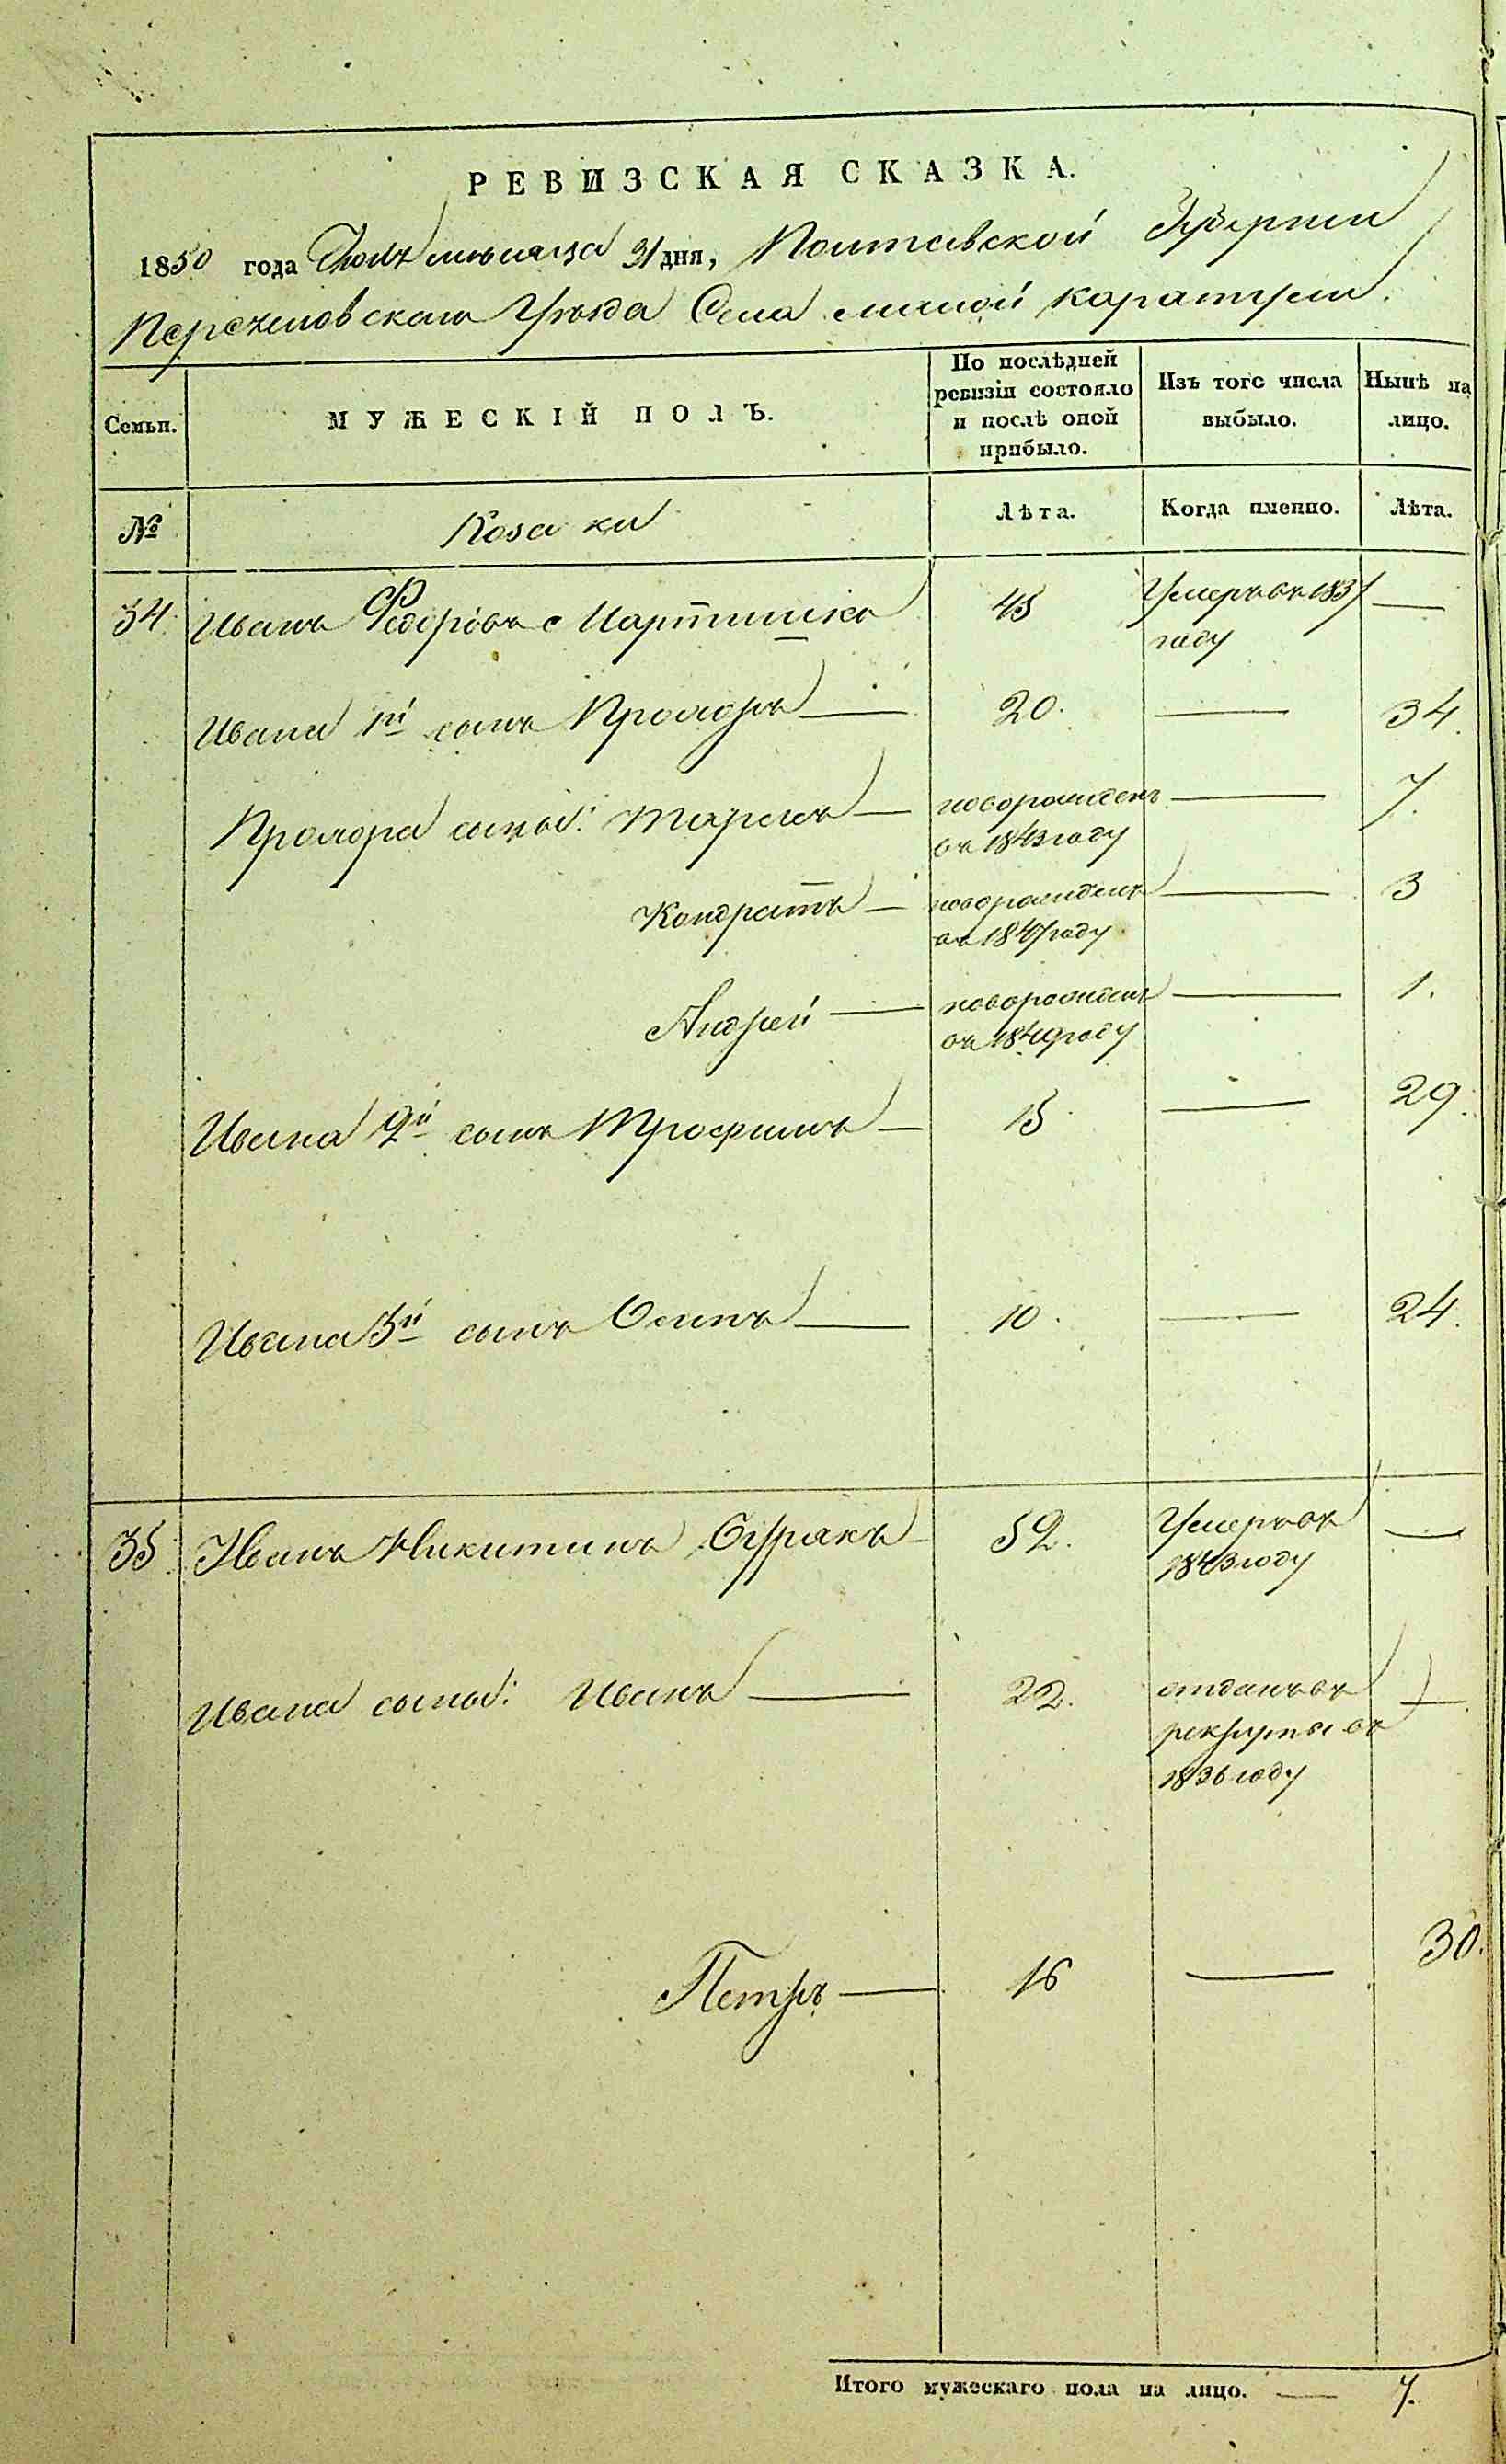 РЕВИЗСКАЯ СКАЗКА.
1850 года Июля месяца 31 дня, Полтавской Губернии
Переяславскаго Уѣзда Села малой каратули.
Семьи.
МУЖЕСКІЙ ПОЛЪ.
По послѣдней ревизіи состояло и послѣ оной прибыло.
Изъ того числа выбыло.
Нынѣ на лицо.
№
Козаки
Лѣта.
Когда именно.
Лѣта.
34. Иванъ Федоровъ 45 Умеръ въ 1837 —
году
Ивана 1й сынъ Прохоръ — 20. — 34.
Прохора сыновья: Тарасъ — новорожденъ — 7.
въ 1843 году
Кондратъ — новорожденъ — 3
въ 1847 году
Андрей — новорожденъ — 1.
въ 1849 году
Ивана 2й сынъ Трофимъ — 15 — 29.
Ивана 3й сынъ Осипъ — 10. — 24.
35 Иванъ Никитинъ Бурякъ 52. Умеръ въ —
1843 году
Ивана сыновья: Иванъ — 22. отданъ въ —
рекруты въ
1836 году
Петръ — 16 — 30.
Итого мужескаго пола на лицо. — 7.